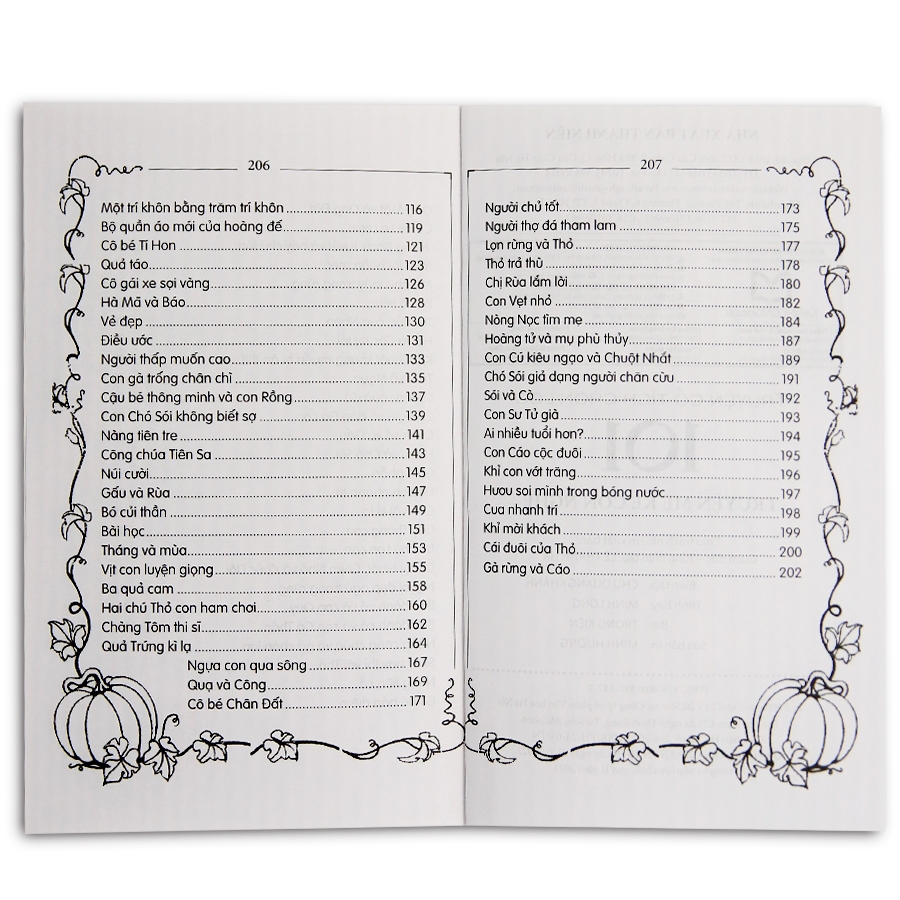 206
Một trí khôn bằng trăm trí khôn 116
Bộ quần áo mới của hoàng đế 119
Cô bé Tí Hon 121
Quả táo 123
Cô gái xe sợi vàng 126
Hà Mã và Báo 128
Vẻ đẹp 130
Điều ước 131
Người thấp muốn cao 133
Con gà trống chân chì 135
Cậu bé thông minh và con Rồng 137
Con Chó Sói không biết sợ 139
Nàng tiên tre 141
Công chúa Tiên Sa 143
Núi cười 145
Gấu và Rùa 147
Bó củi thần 149
Bài học 151
Tháng và mùa 153
Vịt con luyện giọng 155
Ba quả cam 158
Hai chú Thỏ con ham chơi 160
Chàng Tôm thi sĩ 162
Quả Trứng kì lạ 164
Ngựa con qua sông 167
Quạ và Công 169
Cô bé Chân Đất 171
207
Người chủ tốt 173
Người thợ đá tham lam 175
Lợn rừng và Thỏ 177
Thỏ trả thù 178
Chị Rùa lắm lời 180
Con Vẹt nhỏ 182
Nòng Nọc tìm mẹ 184
Hoàng tử và mụ phù thủy 187
Con Cú kiêu ngạo và Chuột Nhắt 189
Chó Sói giả dạng người chăn cừu 191
Sói và Cò 192
Con Sư Tử già 193
Ai nhiều tuổi hơn? 194
Con Cáo cộc đuôi 195
Khỉ con vớt trăng 196
Hươu soi mình trong bóng nước 197
Cua nhanh trí 198
Khỉ mời khách 199
Cái đuôi của Thỏ 200
Gà rừng và Cáo 202